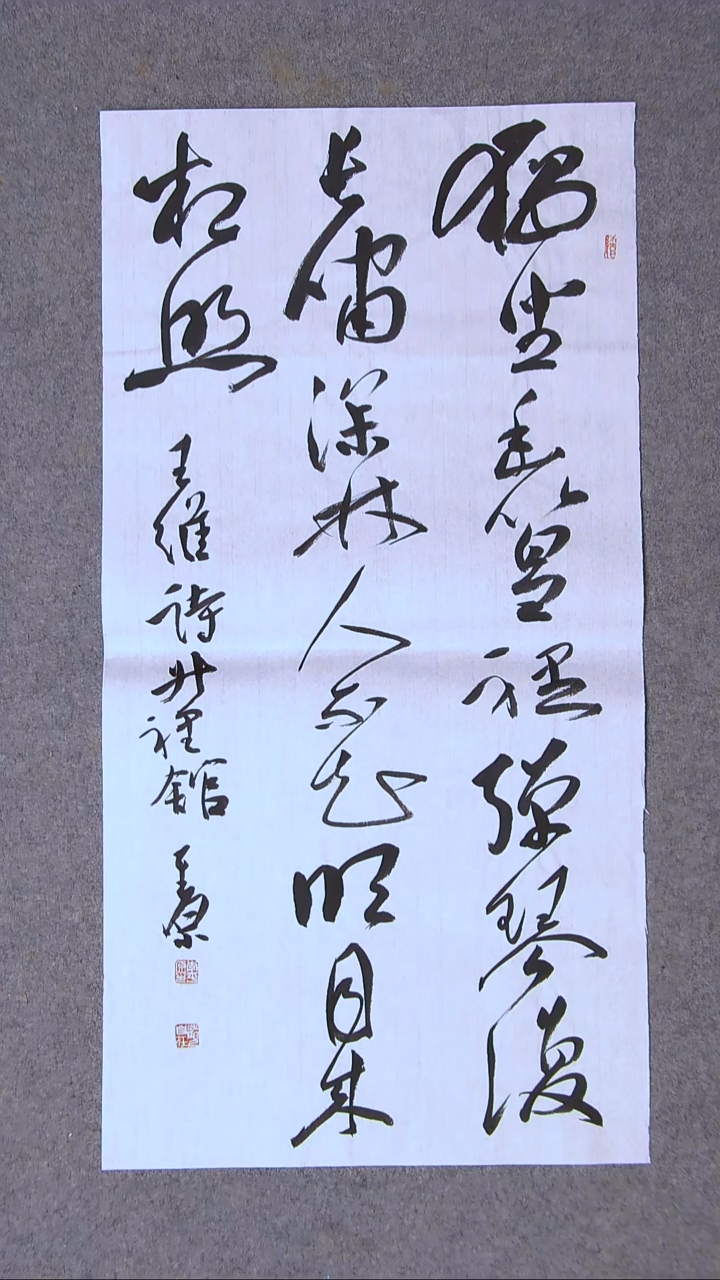 獨坐幽篁裡彈琴復
長嘯深林人不知明月來
相照
王維詩竹裡館